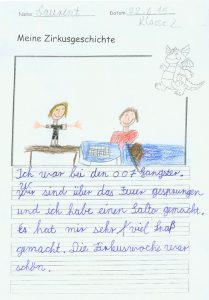 Name: Laurent Datum: 22.6.15
Klasse 2
Meine Zirkusgeschichte
Ich war bei den 007 Gangster.
Wir sind über das Feuer gesprungen
und ich habe einen Salto gemacht.
Es hat mir sehr viel Spaß
gemacht. Die Zirkuswoche war
schön.